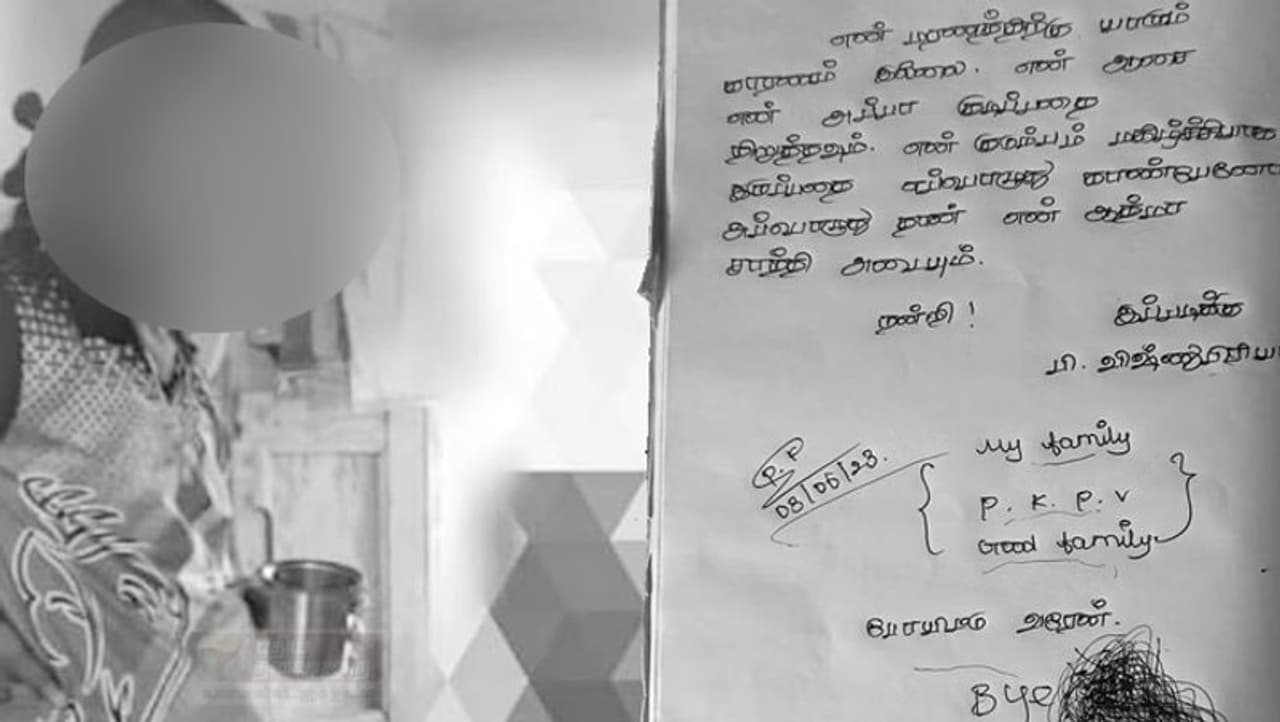 என் மரணத்திற்கு யாரும்
காரணம் இல்லை. என் ஆசை
என் அப்பா குடிப்பதை
நிறுத்தவும். என் குடும்பம் மகிழ்ச்சியாக
இருப்பதை எப்பொழுது காண்பேனோ
அப்பொழுது தான் என் ஆத்மா
சாந்தி அடையும்.
நன்றி! இப்படிக்கு
பி. விஷ்ணுபிரியா
R.P
08/06/23.
My family
P. K. P. V
Good family
போயிட்டு வரேன்.
Bye